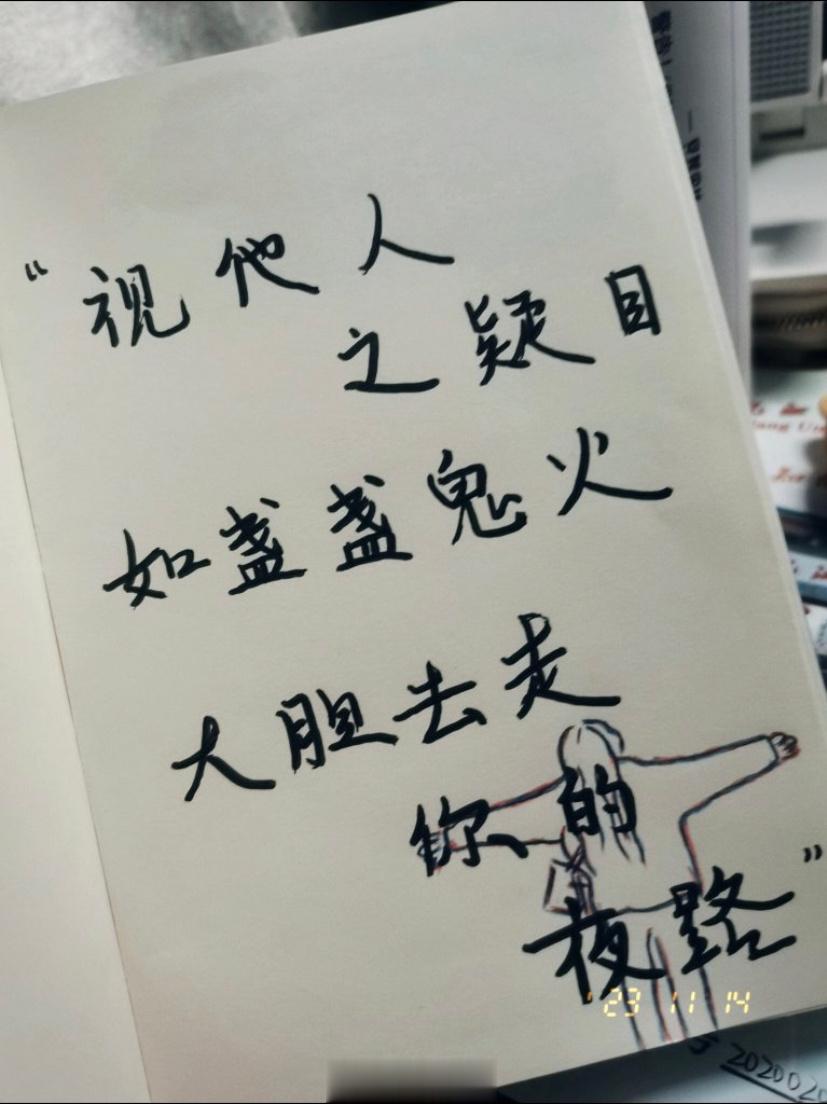 “视他人
之疑目
如盏盏鬼火
大胆去走
你的
夜路”
'23 11 14
202002